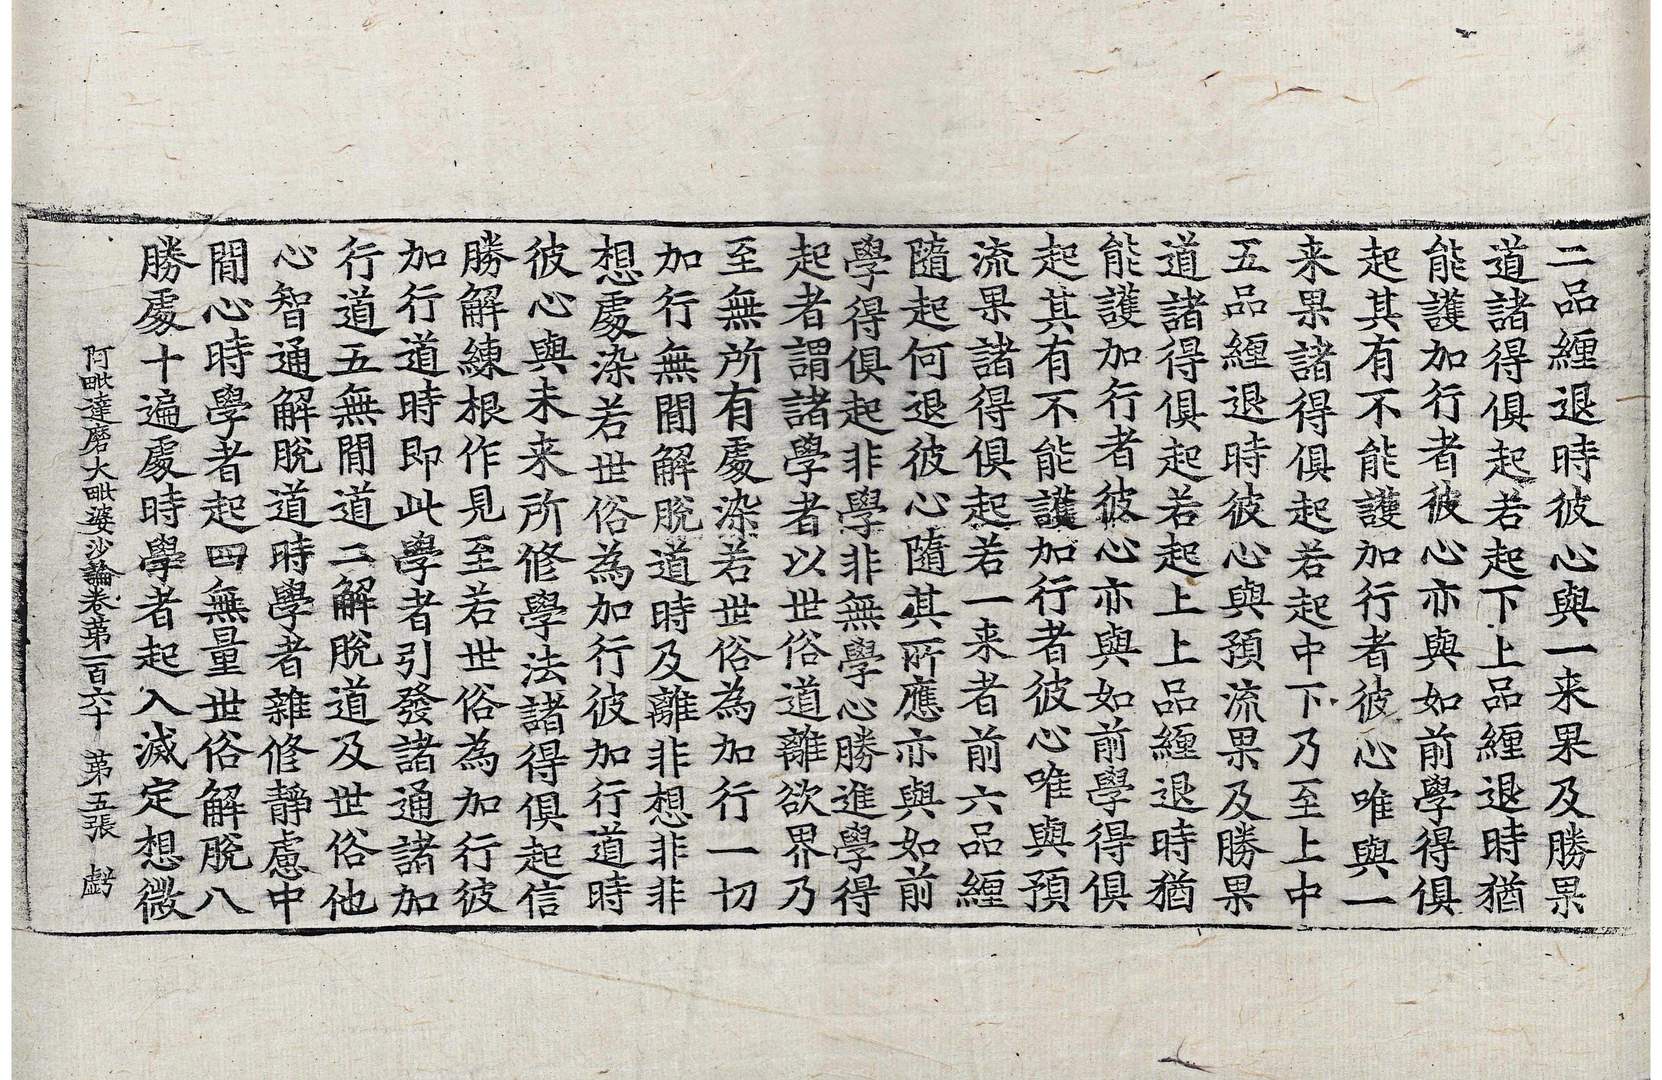 二品纏退時彼心與一来果及勝果
道諸得俱起若起下上品纏退時猶
能護加行者彼心亦與如前學得俱
起其有不能護加行者彼心唯與一
来果諸得俱起若起中下乃至上中
五品纏退時彼心與預流果及勝果
道諸得俱起若起上上品纏退時猶
能護加行者彼心亦與如前學得俱
起其有不能護加行者彼心唯與預
流果諸得俱起若一来者前六品纏
隨起何退彼心隨其所應亦與如前
學得俱起非學非無學心勝進學得
起者謂諸學者以世俗道離欲界乃
至無所有處染若世俗為加行一切
加行無間解脫道時及離非想非非
想處染若世俗為加行彼加行道時
彼心與未来所修學法諸得俱起信
勝解練根作見至若世俗為加行彼
加行道時即此學者引發諸通諸加
行道五無間道二解脫道及世俗他
心智通解脫道時學者雜修靜慮中
間心時學者起四無量世俗解脫八
勝處十遍處時學者起入滅定想微
阿毗達磨大毗婆沙論卷第一百六十 第五張 虧